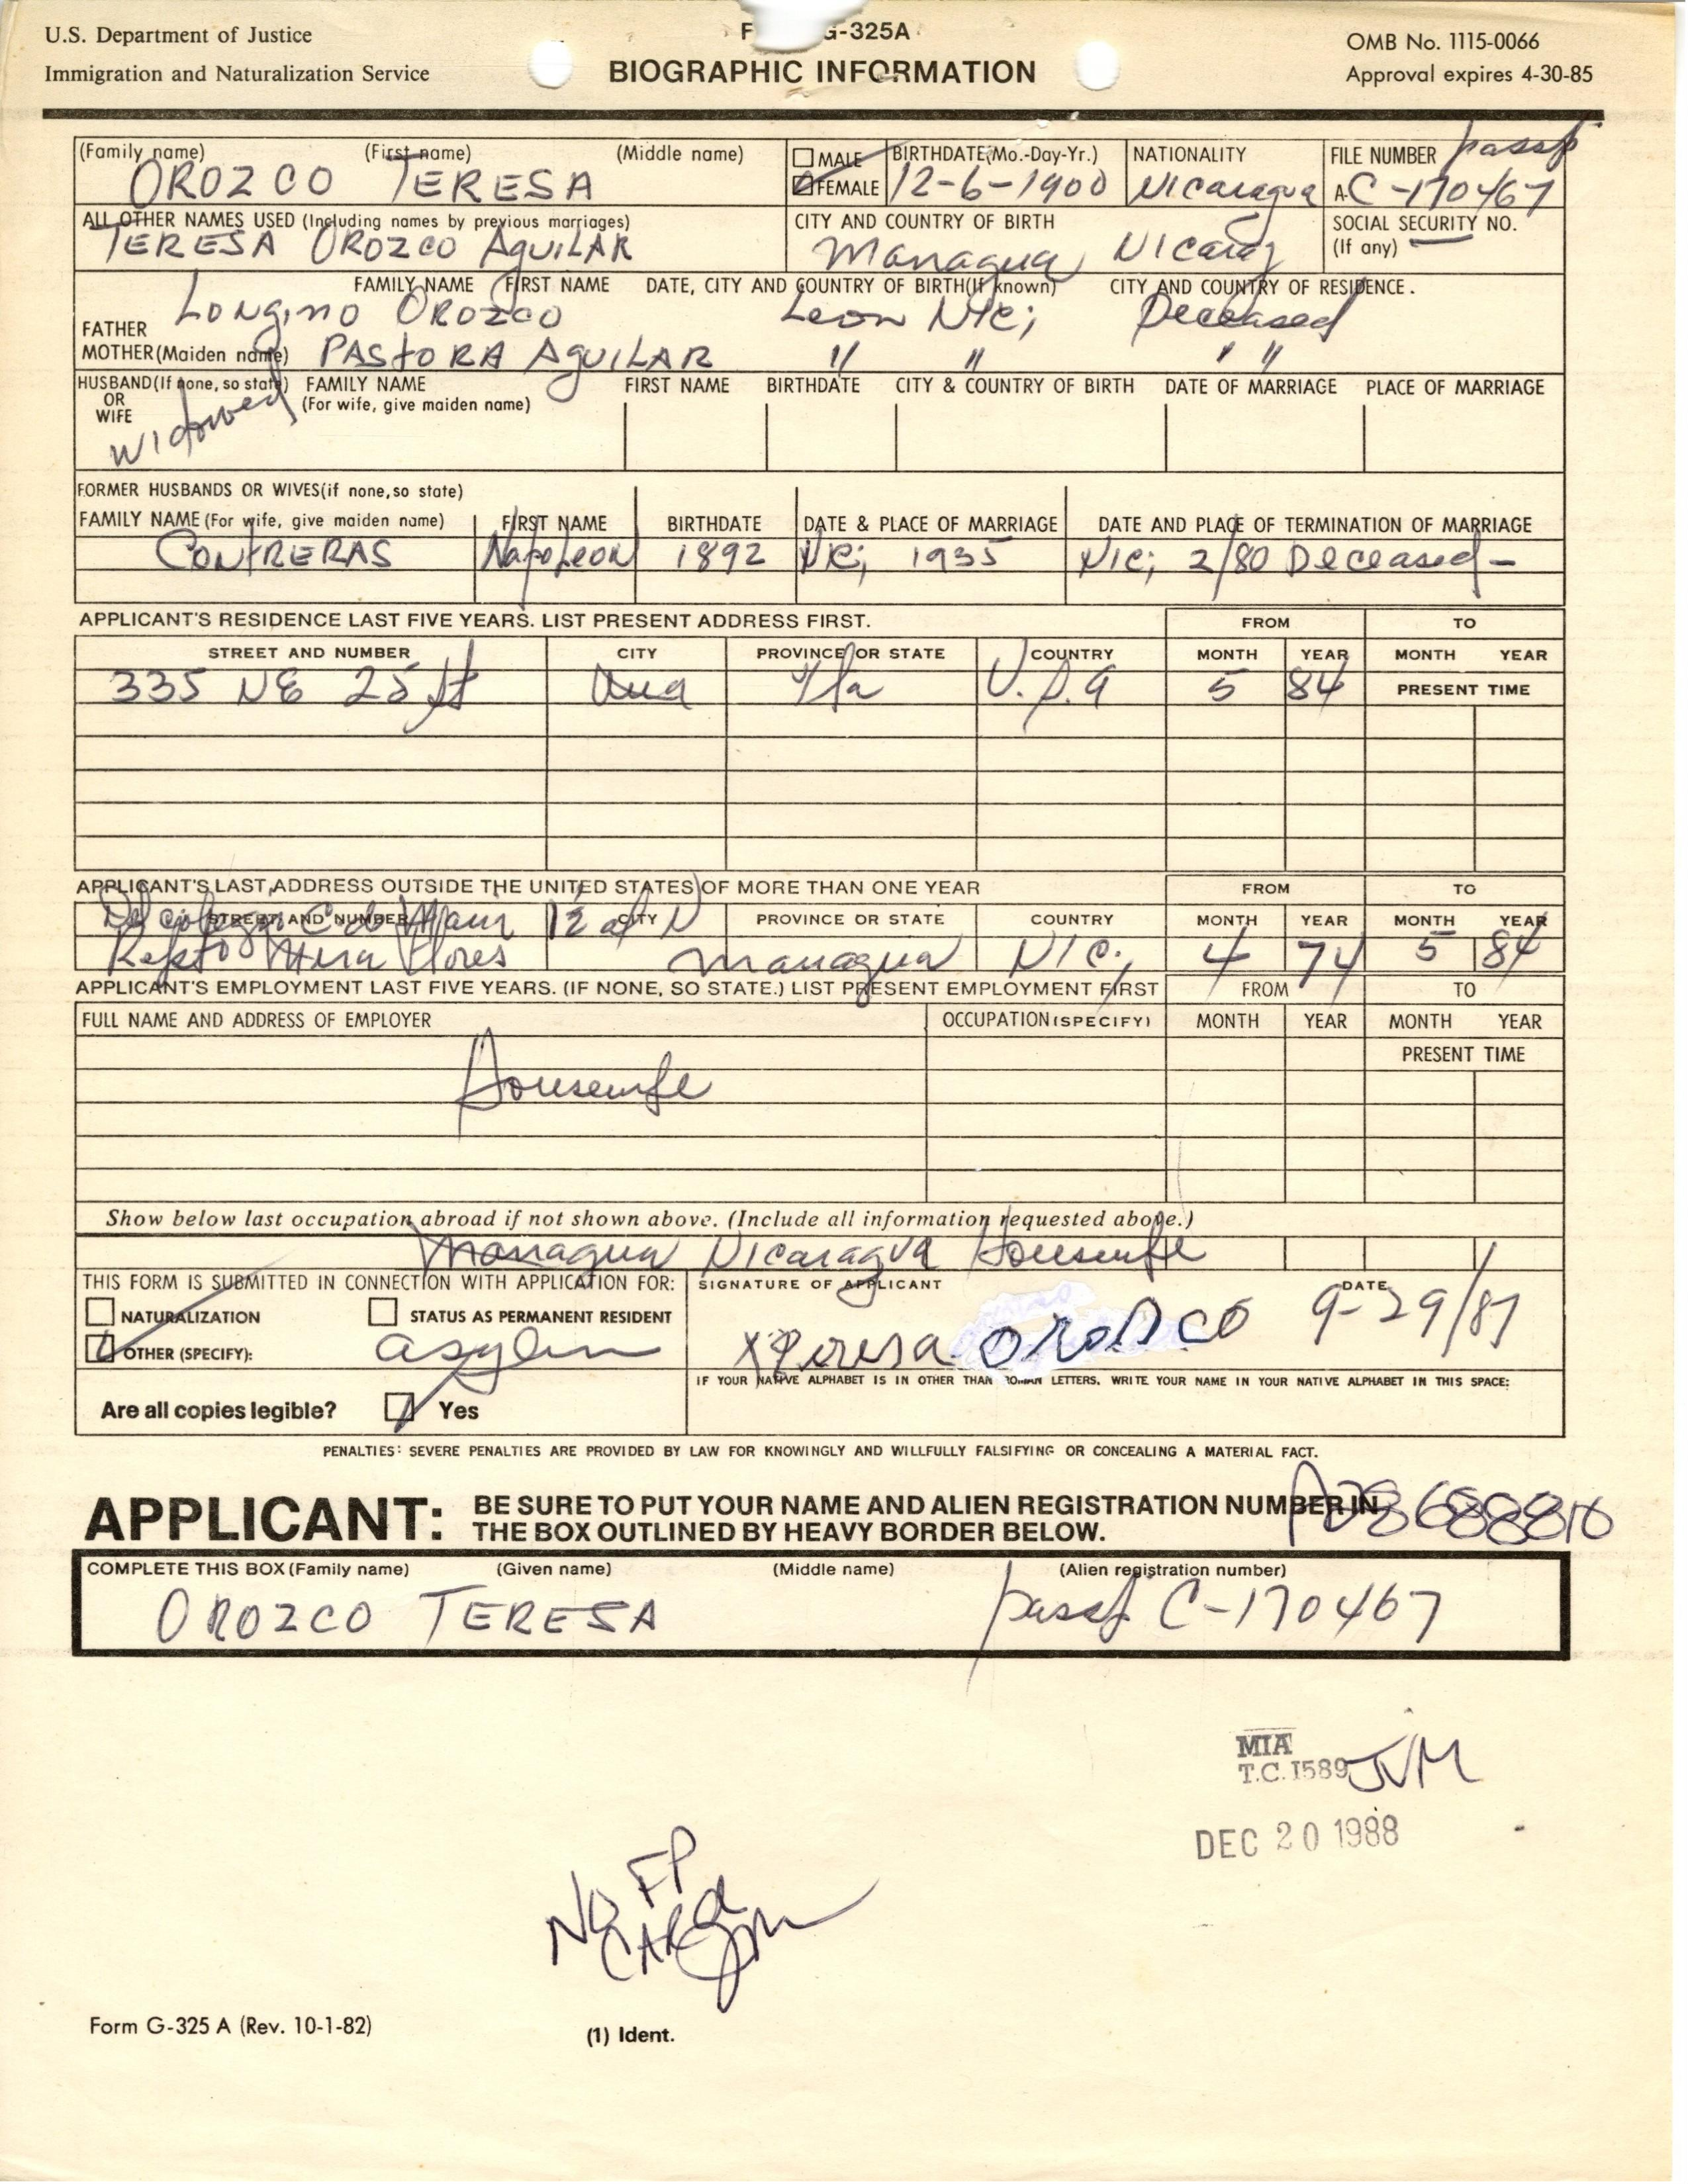 U.S. Department of Justice
Immigration and Naturalization Service
G-325A
BIOGRAPHIC INFORMATION
OMB No. 1115-0066
Approval expires 4-30-85
(Family name) (First name) (Middle name)
OROZCO TERESA
MALE
FEMALE
BIRTHDATE (Mo.-Day-Yr.)
12-6-1900
NATIONALITY
Nicaragua
FILE NUMBER passp
A-C-170467
ALL OTHER NAMES USED (Including names by previous marriages)
TERESA OROZCO AguiLAR
CITY AND COUNTRY OF BIRTH
Managua Nicarag
SOCIAL SECURITY NO.
(If any) —
FAMILY NAME FIRST NAME DATE, CITY AND COUNTRY OF BIRTH(If known) CITY AND COUNTRY OF RESIDENCE.
FATHER Longino OROZCO Leon Nic; Deceased
MOTHER (Maiden name) PAStORA AguiLAR " " " "
HUSBAND(If none, so state) OR WIFE
Widowed
FAMILY NAME (For wife, give maiden name)
FIRST NAME BIRTHDATE CITY & COUNTRY OF BIRTH DATE OF MARRIAGE PLACE OF MARRIAGE
FORMER HUSBANDS OR WIVES(if none, so state)
FAMILY NAME (For wife, give maiden name) FIRST NAME BIRTHDATE DATE & PLACE OF MARRIAGE DATE AND PLACE OF TERMINATION OF MARRIAGE
CONtRERAS Napoleon 1892 Nic; 1935 Nic; 2/80 Deceased-
APPLICANT'S RESIDENCE LAST FIVE YEARS. LIST PRESENT ADDRESS FIRST. FROM TO
STREET AND NUMBER CITY PROVINCE OR STATE COUNTRY MONTH YEAR MONTH YEAR
335 NE 25 st Fla U.S.A 5 84 PRESENT TIME
APPLICANT'S LAST ADDRESS OUTSIDE THE UNITED STATES OF MORE THAN ONE YEAR FROM TO
STREET AND NUMBER CITY PROVINCE OR STATE COUNTRY MONTH YEAR MONTH YEAR
Del colegio al N
Repto Mira Flores Managua Nic; 4 74 5 84
APPLICANT'S EMPLOYMENT LAST FIVE YEARS. (IF NONE, SO STATE.) LIST PRESENT EMPLOYMENT FIRST FROM TO
FULL NAME AND ADDRESS OF EMPLOYER OCCUPATION (SPECIFY) MONTH YEAR MONTH YEAR
PRESENT TIME
Housewife
Show below last occupation abroad if not shown above. (Include all information requested above.)
Managua Nicaragua Housewife
THIS FORM IS SUBMITTED IN CONNECTION WITH APPLICATION FOR:
NATURALIZATION STATUS AS PERMANENT RESIDENT
OTHER (SPECIFY): asylum
Are all copies legible? Yes
SIGNATURE OF APPLICANT DATE
x Teresa OROZCO 9-29/87
IF YOUR NATIVE ALPHABET IS IN OTHER THAN ROMAN LETTERS, WRITE YOUR NAME IN YOUR NATIVE ALPHABET IN THIS SPACE:
PENALTIES: SEVERE PENALTIES ARE PROVIDED BY LAW FOR KNOWINGLY AND WILLFULLY FALSIFYING OR CONCEALING A MATERIAL FACT.
APPLICANT: BE SURE TO PUT YOUR NAME AND ALIEN REGISTRATION NUMBER IN
THE BOX OUTLINED BY HEAVY BORDER BELOW.
COMPLETE THIS BOX (Family name) (Given name) (Middle name) (Alien registration number)
OROZCO TERESA passp C-170467
MIA
T.C. 1589 JVM
DEC 20 1988
NO FP
CARd
Form G-325 A (Rev. 10-1-82)
(1) Ident.